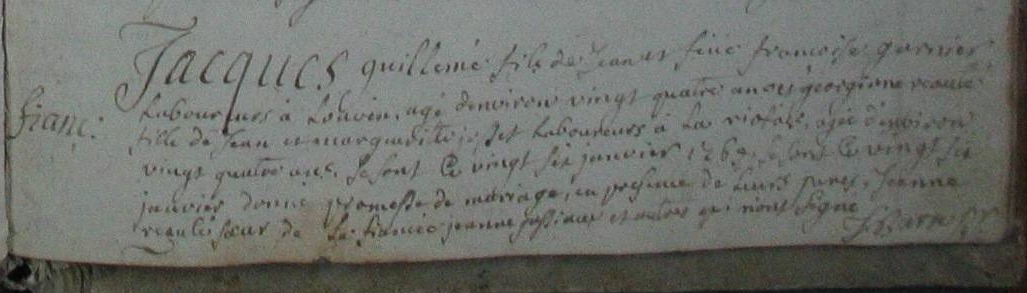 fianç:
Jacques quillemé fils de Jean et feüe francoise garnier
Laboureurs à Louvin, agé denviron vingt quatre ans et georginne reaulé
fille de Jean et margueditte Laboureurs à La agée d'environ
vingt quatre ans, Se sont Ce vingt six janvier Se sont Ce vingt six
janvier donné promesse de mariage, en presence de Leurs peres, Jeanne
reaulé Sœur de La fiancée jeanne et autres qui n'ont Signé